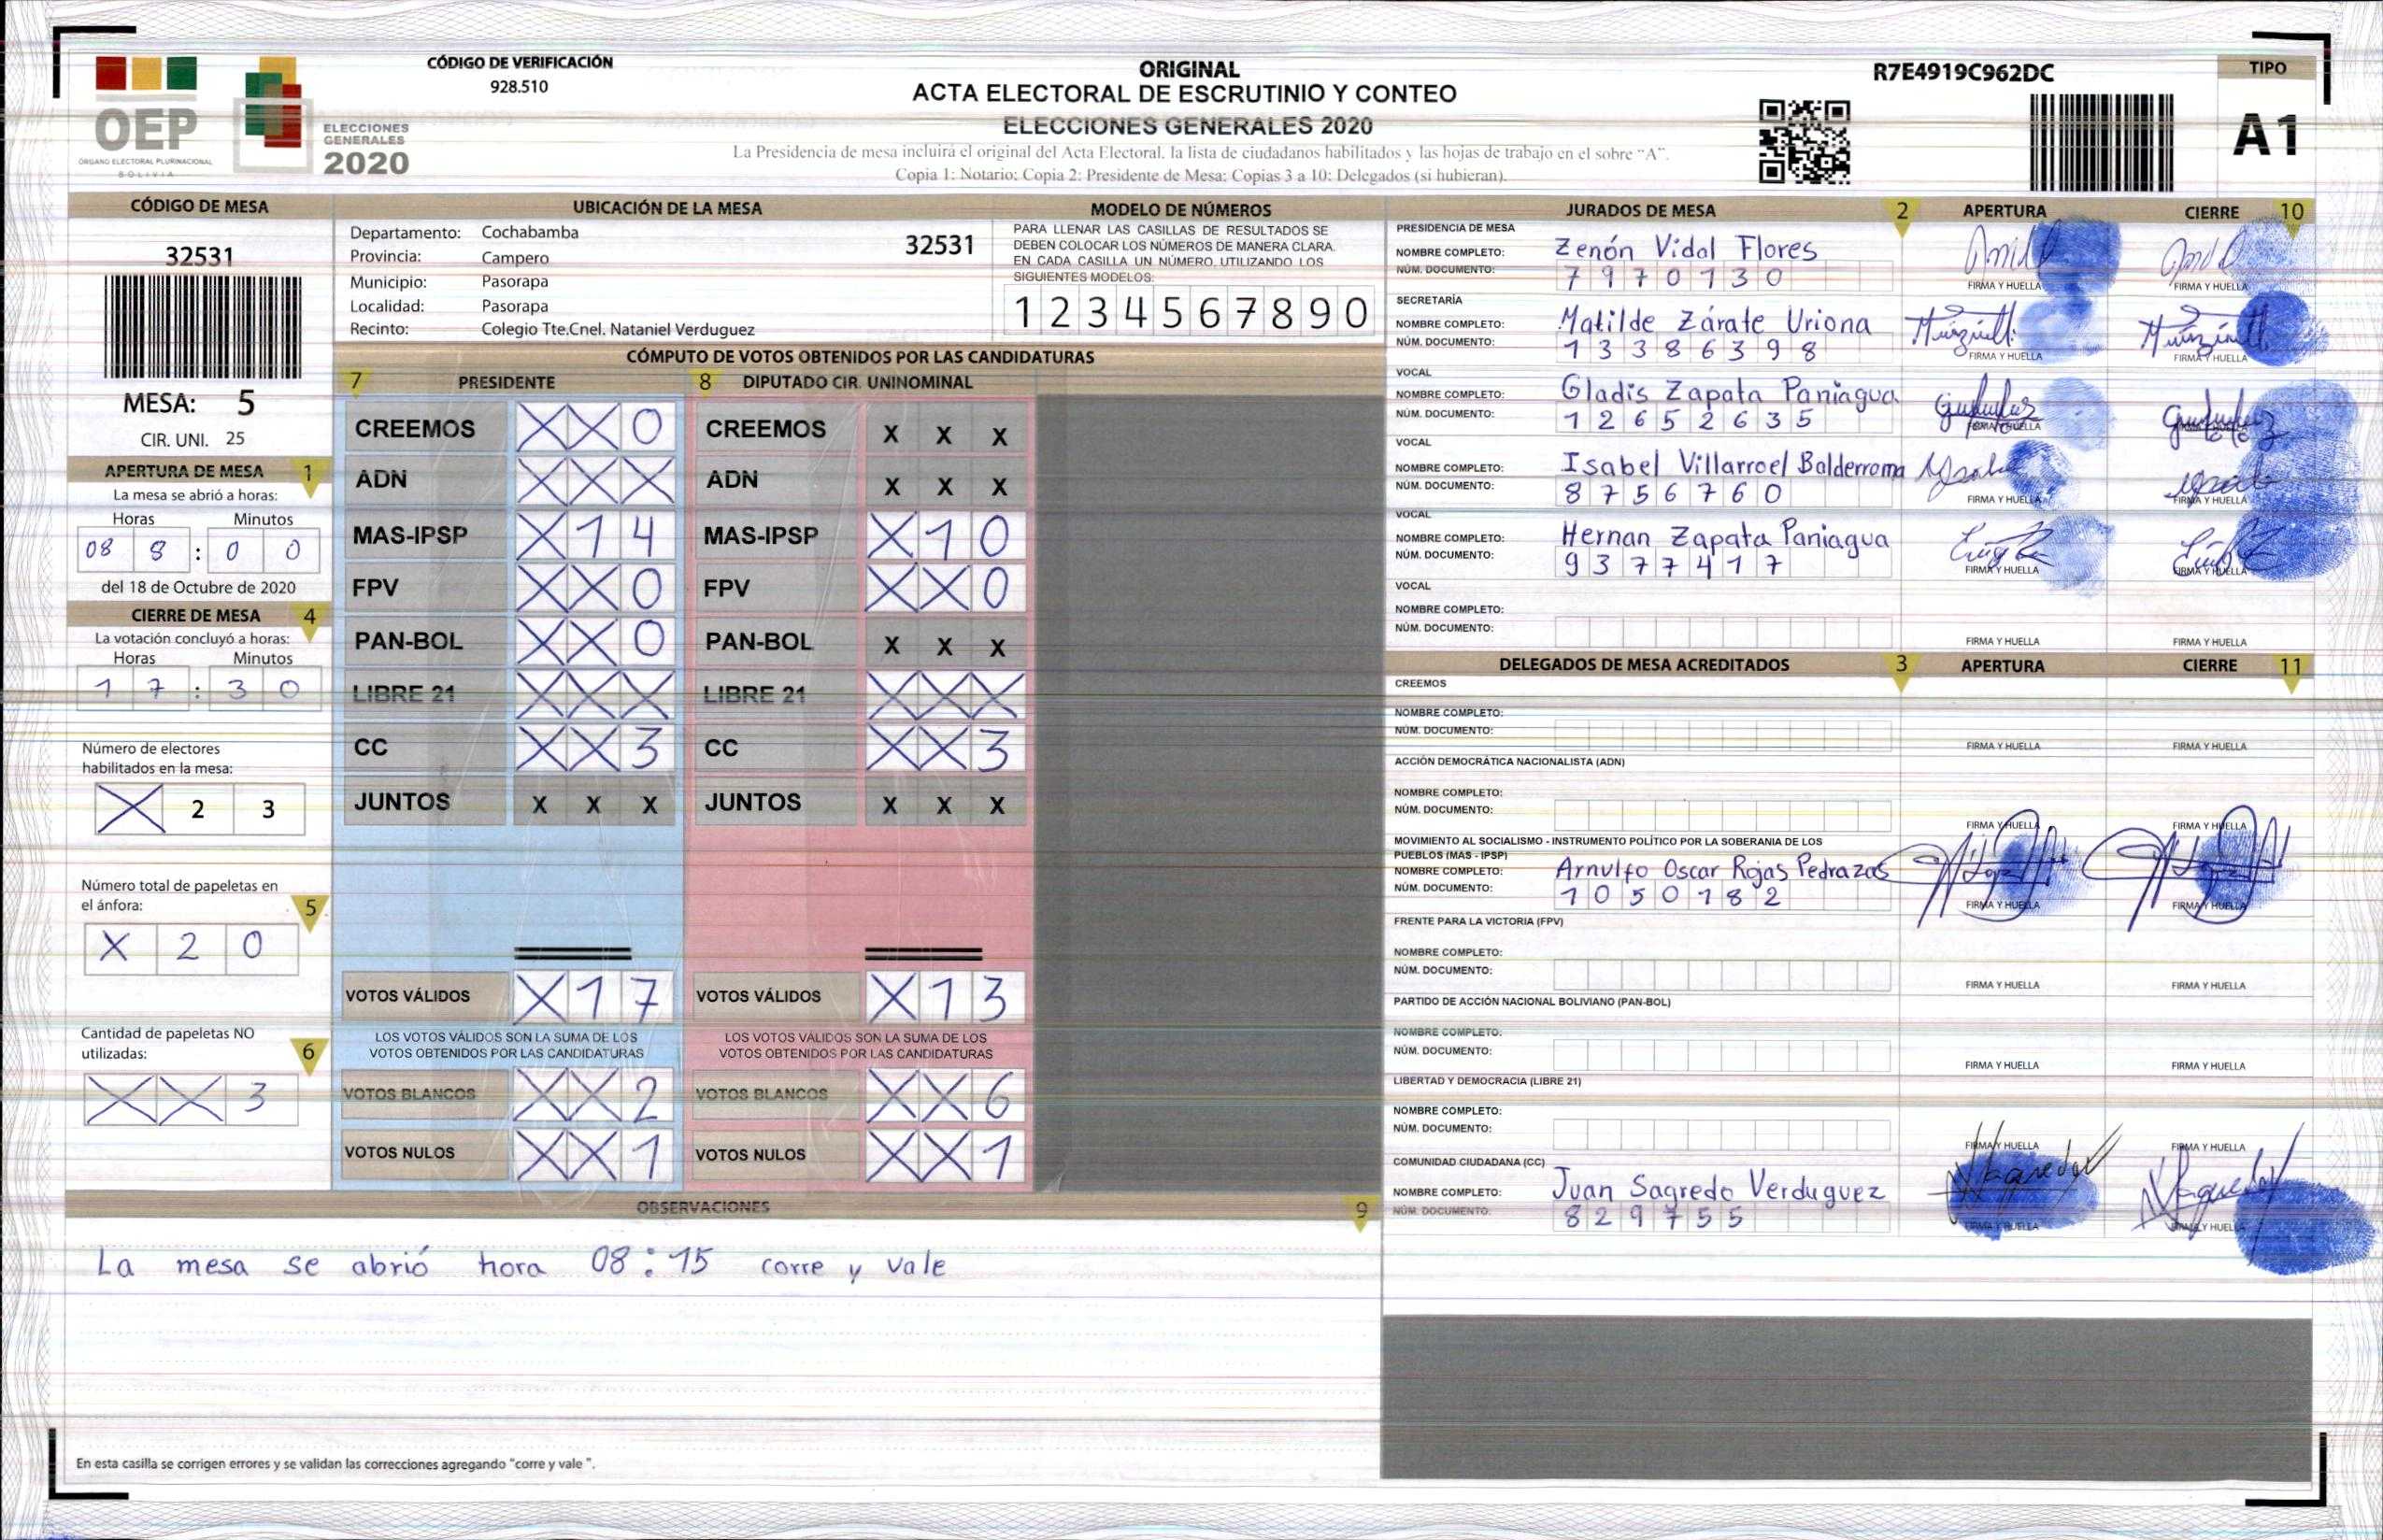 OEP
ÓRGANO ELECTORAL PLURINACIONAL
BOLIVIA
ELECCIONES
GENERALES
2020
CÓDIGO DE VERIFICACIÓN
928.510
ORIGINAL
ACTA ELECTORAL DE ESCRUTINIO Y CONTEO
ELECCIONES GENERALES 2020
La Presidencia de mesa incluirá el original del Acta Electoral, la lista de ciudadanos habilitados y las hojas de trabajo en el sobre "A".
Copia 1: Notario; Copia 2: Presidente de Mesa; Copias 3 a 10: Delegados (si hubieran).
R7E4919C962DC
TIPO
A1
CÓDIGO DE MESA
32531
MESA: 5
CIR. UNI. 25
APERTURA DE MESA 1
La mesa se abrió a horas:
Horas Minutos
08 8 : 0 0
del 18 de Octubre de 2020
CIERRE DE MESA 4
La votación concluyó a horas:
Horas Minutos
1 7 : 3 0
Número de electores
habilitados en la mesa:
X 2 3
Número total de papeletas en
el ánfora: 5
X 2 0
Cantidad de papeletas NO
utilizadas: 6
X X 3
UBICACIÓN DE LA MESA
Departamento: Cochabamba 32531
Provincia: Campero
Municipio: Pasorapa
Localidad: Pasorapa
Recinto: Colegio Tte.Cnel. Nataniel Verduguez
MODELO DE NÚMEROS
PARA LLENAR LAS CASILLAS DE RESULTADOS SE
DEBEN COLOCAR LOS NÚMEROS DE MANERA CLARA.
EN CADA CASILLA UN NÚMERO, UTILIZANDO LOS
SIGUIENTES MODELOS:
1 2 3 4 5 6 7 8 9 0
CÓMPUTO DE VOTOS OBTENIDOS POR LAS CANDIDATURAS
7 PRESIDENTE 8 DIPUTADO CIR. UNINOMINAL
CREEMOS X X 0 CREEMOS X X X
ADN X X X ADN X X X
MAS-IPSP X 1 4 MAS-IPSP X 1 0
FPV X X 0 FPV X X 0
PAN-BOL X X 0 PAN-BOL X X X
LIBRE 21 X X X LIBRE 21 X X X
CC X X 3 CC X X 3
JUNTOS X X X JUNTOS X X X
VOTOS VÁLIDOS X 1 7 VOTOS VÁLIDOS X 1 3
LOS VOTOS VÁLIDOS SON LA SUMA DE LOS LOS VOTOS VÁLIDOS SON LA SUMA DE LOS
VOTOS OBTENIDOS POR LAS CANDIDATURAS VOTOS OBTENIDOS POR LAS CANDIDATURAS
VOTOS BLANCOS X X 2 VOTOS BLANCOS X X 6
VOTOS NULOS X X 1 VOTOS NULOS X X 1
OBSERVACIONES 9
La mesa se abrió hora 08:15 corre y vale
En esta casilla se corrigen errores y se validan las correcciones agregando "corre y vale ".
JURADOS DE MESA 2 APERTURA CIERRE 10
PRESIDENCIA DE MESA
NOMBRE COMPLETO: Zenón Vidal Flores
NÚM. DOCUMENTO: 7970130
FIRMA Y HUELLA FIRMA Y HUELLA
SECRETARÍA
NOMBRE COMPLETO: Matilde Zárate Uriona
NÚM. DOCUMENTO: 13386398
FIRMA Y HUELLA FIRMA Y HUELLA
VOCAL
NOMBRE COMPLETO: Gladis Zapata Paniagua
NÚM. DOCUMENTO: 12652635
FIRMA Y HUELLA FIRMA Y HUELLA
VOCAL
NOMBRE COMPLETO: Isabel Villarroel Balderroma
NÚM. DOCUMENTO: 8756760
FIRMA Y HUELLA FIRMA Y HUELLA
VOCAL
NOMBRE COMPLETO: Hernan Zapata Paniagua
NÚM. DOCUMENTO: 9377417
FIRMA Y HUELLA FIRMA Y HUELLA
VOCAL
NOMBRE COMPLETO:
NÚM. DOCUMENTO:
FIRMA Y HUELLA FIRMA Y HUELLA
DELEGADOS DE MESA ACREDITADOS 3 APERTURA CIERRE 11
CREEMOS
NOMBRE COMPLETO:
NÚM. DOCUMENTO:
FIRMA Y HUELLA FIRMA Y HUELLA
ACCIÓN DEMOCRÁTICA NACIONALISTA (ADN)
NOMBRE COMPLETO:
NÚM. DOCUMENTO:
FIRMA Y HUELLA FIRMA Y HUELLA
MOVIMIENTO AL SOCIALISMO - INSTRUMENTO POLÍTICO POR LA SOBERANIA DE LOS
PUEBLOS (MAS - IPSP)
NOMBRE COMPLETO: Arnulfo Oscar Rojas Pedrazas
NÚM. DOCUMENTO: 1050182
FIRMA Y HUELLA FIRMA Y HUELLA
FRENTE PARA LA VICTORIA (FPV)
NOMBRE COMPLETO:
NÚM. DOCUMENTO:
FIRMA Y HUELLA FIRMA Y HUELLA
PARTIDO DE ACCIÓN NACIONAL BOLIVIANO (PAN-BOL)
NOMBRE COMPLETO:
NÚM. DOCUMENTO:
FIRMA Y HUELLA FIRMA Y HUELLA
LIBERTAD Y DEMOCRACIA (LIBRE 21)
NOMBRE COMPLETO:
NÚM. DOCUMENTO:
FIRMA Y HUELLA FIRMA Y HUELLA
COMUNIDAD CIUDADANA (CC)
NOMBRE COMPLETO: Juan Sagredo Verduguez
NÚM. DOCUMENTO: 829755
FIRMA Y HUELLA FIRMA Y HUELLA